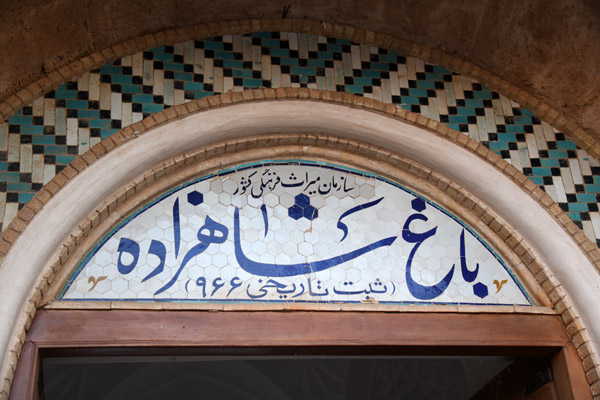 سازمان میراث فرهنگی کشور
باغ شاهزاده
(ثبت تاریخی ۹۶۶)